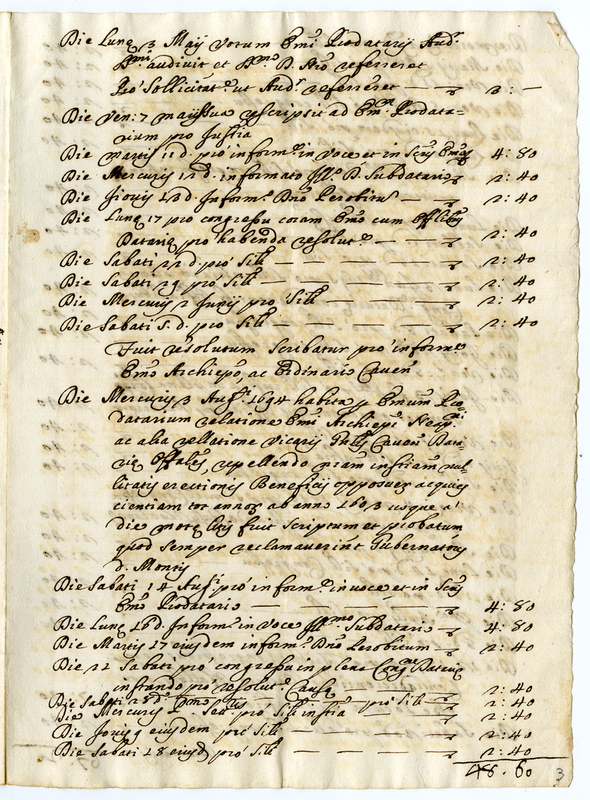 Die Lunę 3 Maij votum Emi Prodatarij Audr
Dnus audivit et Dno D. Aro referreret
Pro Sollicitatne ut Audr referreret — 2: —
Die Ven: 7 rescripsit ad Emum Prodata-
rium pro Justia
Die Martis 11 d. pro informne in voce et in Scrij 4: 80
Die Mercurij 12 d. informato Illmo D. Subdatario 2: 40
Die Jiovis 13 d. Informne Dno — 2: 40
Die Lunę 17 pro congressu coram Emo cum Offlibus
Datarię pro habenda resolutne — — — 2: 40
Die Sabati 22 d. pro Sili — — — — 2: 40
Die Sabati 29 pro Sili — — — — 2: 40
Die Mercurij 2 Junij pro Sili — — — 2: 40
Die Sabati 5. d. pro Sili — — — — 2: 40
Fuit resolutum Scribatur pro informne
Emo Archiepo, ac Ordinario
Die Mercurij 3 Augti 1694 habita p Emum Pro
datarium relatione Emi Archiepi Neapni
ac alia rellatione Vicarij
Offales, repellendo meam instiam nul
litatis erectionis Beneficij opposuer acquies
cientiam tot annoz ab anno 1603 usque a'
die motę litis fuit Scriptum et probatum
quod Semper reclamaverint Gubernatores
d. Montis
Die Sabati 14 Augi pro informne in voce et in Scrij
Emo Prodatario — — — — 4: 80
Die Lunę 16 d. Informne in voce Illmo Subdatario 4: 80
Die Martis 17 ejusdem informne Dno — 2: 40
Die 21 Sabati pro congressu in plena Congne Datarię
instando pro resolutne Causę — — 2: 40
Die Sabati 28 d. pro Sili — 2: 40
Die Mercurij pro Sili instia — 2: 40
Die Jovis 9 ejusdem pro Sili — — — 2: 40
Die Sabati 18 ejusd pro Sili — — — 2: 40
48. 60
3